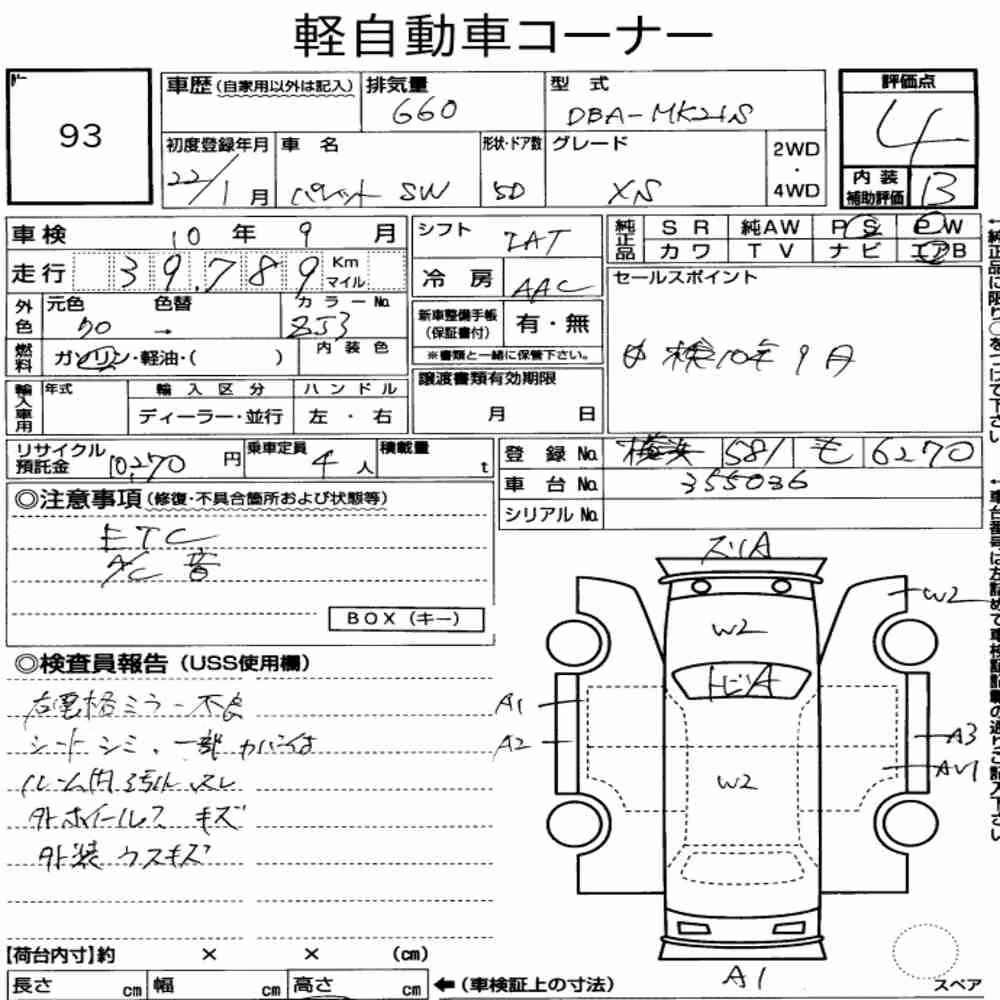 軽自動車コーナー
93
車歴 (自家用以外は記入)
排気量
660
型 式
DBA-MK21S
評価点
4
内装補助評価 B
初度登録年月
22/1月
車 名
パレット SW
形状・ドア数
5D
グレード
XS
2WD
・
4WD
車検 10 年 9 月
走行 39,789 Km マイル
外色
元色
クロ
色替
→
カラーNo.
ZJ3
燃料
ガソリン・軽油・( )
内装色
輸入車用
年式
輸入区分
ディーラー・並行
ハンドル
左・右
シフト
IAT
冷房
AAC
新車整備手帳
(保証書付)
有・無
※書類と一緒に保管下さい。
譲渡書類有効期限
月 日
純正品
SR 純AW PS PW
カワ TV ナビ エアB
セールスポイント
車検10年9月
←純正品に限り○をつけて下さい
リサイクル預託金 10,270 円
乗車定員 4 人
積載量 t
登録No. 横浜 581 も 6270
車台No. 355036
シリアルNo.
◎注意事項 (修復・不具合箇所および状態等)
ETC
A/C 音
BOX (キー)
◎検査員報告 (USS使用欄)
右電格ミラー不良
シートシミ、一部
ルーム内汚れ スレ
外ホイールス キズ
外装 ウスキズ
ズリA
W2
W2
トビA
A1
A2
A3
W2
A1
スペア
【荷台内寸】約 × × (cm)
長さ cm 幅 cm 高さ cm
←(車検証上の寸法)